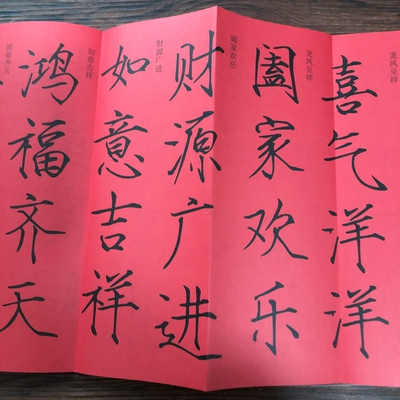 龙凤呈祥
喜气洋洋
龙凤呈祥
阖家欢乐
阖家欢乐
财源广进
财源广进
如意吉祥
如意吉祥
鸿福齐天
鸿福齐天